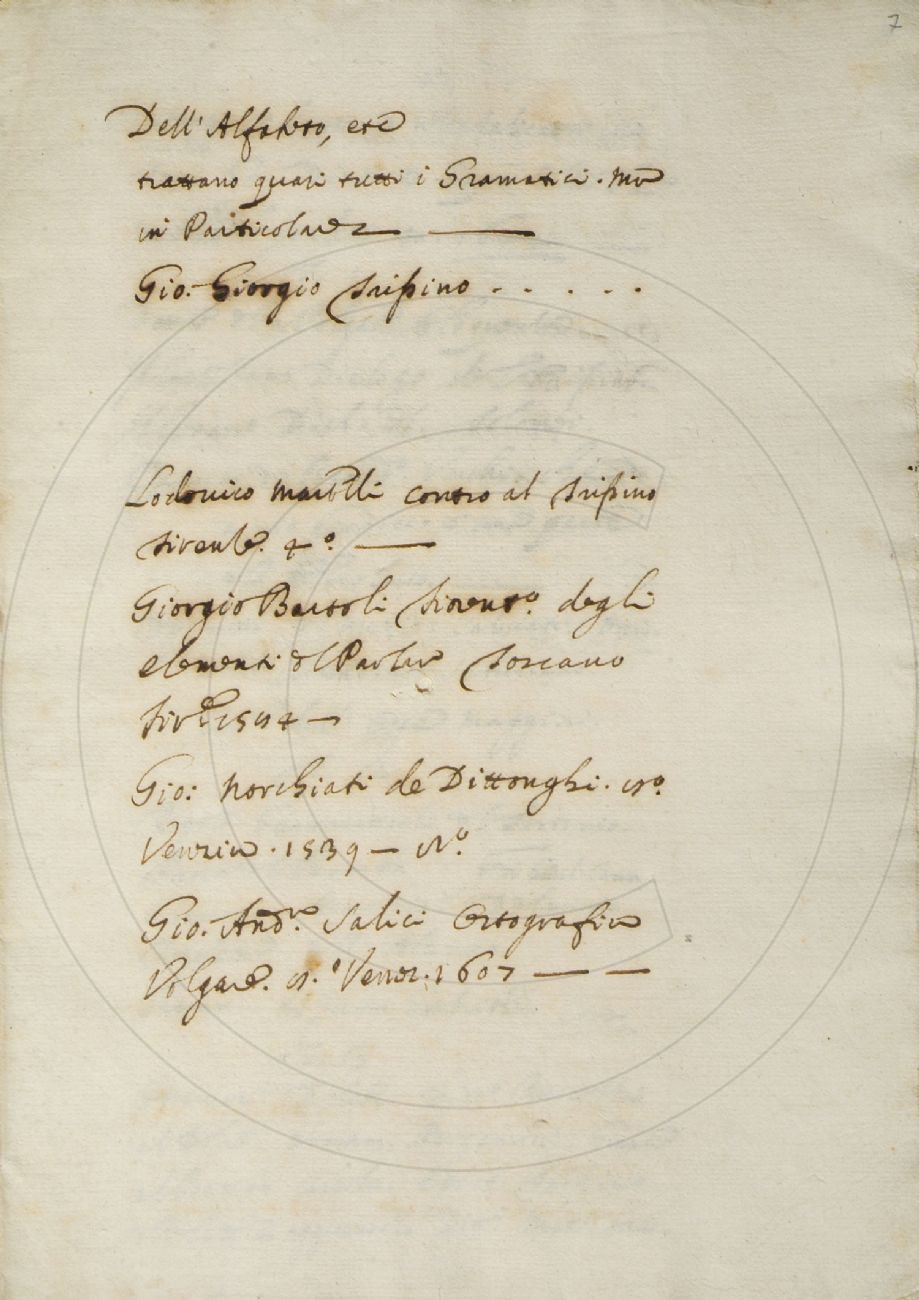 7
Dell' Alfabeto, etc
trattano quasi tutti i Gramatici. Ma
in Particolare
Gio: Giorgio Trissino . . . . .
Lodovico Martelli contro al Trissino
Firenze. 4°.
Giorgio Bartoli Fiorent.° degli
elementi del Parlar Toscano
Fir.e 1584
Gio: Norchiati de Dittonghi.
Venezia. 1539
Gio. And.ea Salici Ortografia
Volgare. Venez. 1607